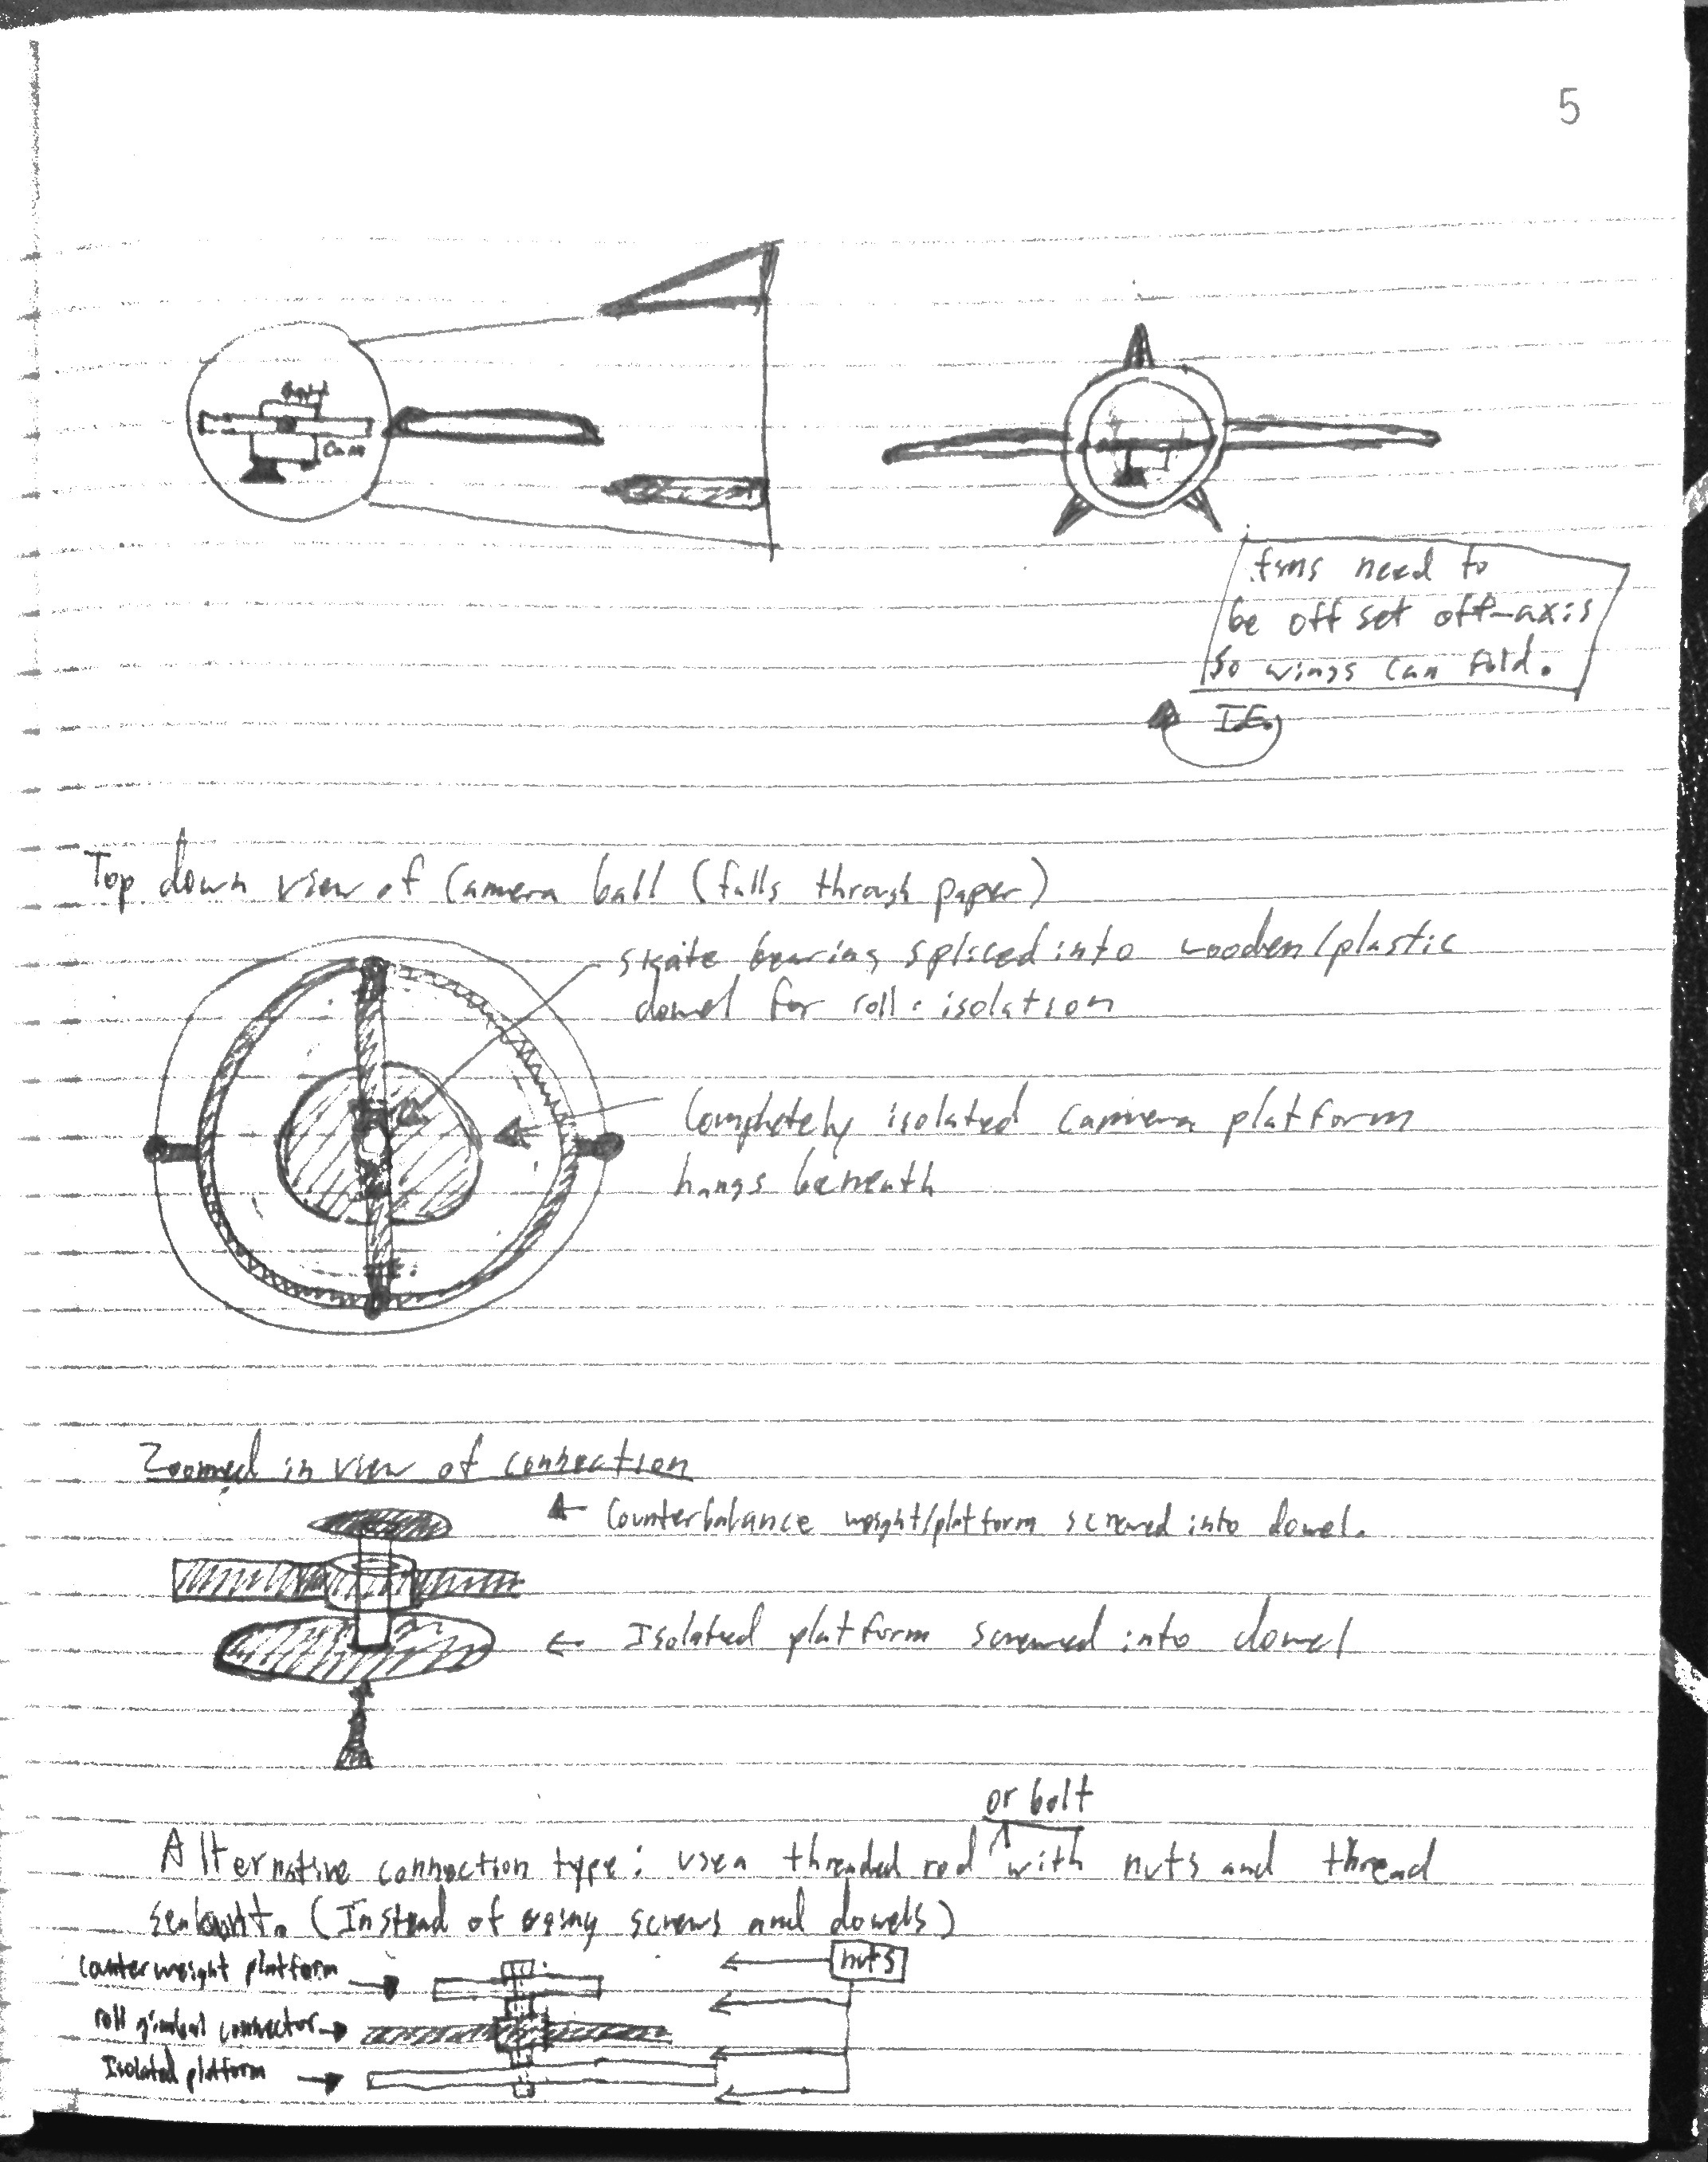 5
Cam
fins need to
be offset off-axis
so wings can fold.
I.E.
Top down view of Camera ball (falls through paper)
skate bearing spliced into wooden/plastic
dowel for roll isolation
Completely isolated camera platform
hangs beneath
Zoomed in view of connection
Counterbalance weight/platform screwed into dowel.
Isolated platform screwed into dowel
or bolt
Alternative connection type: use a threaded rod with nuts and thread
sealant. (Instead of using screws and dowels)
nuts
Counterweight platform
roll gimbal connector
Isolated platform